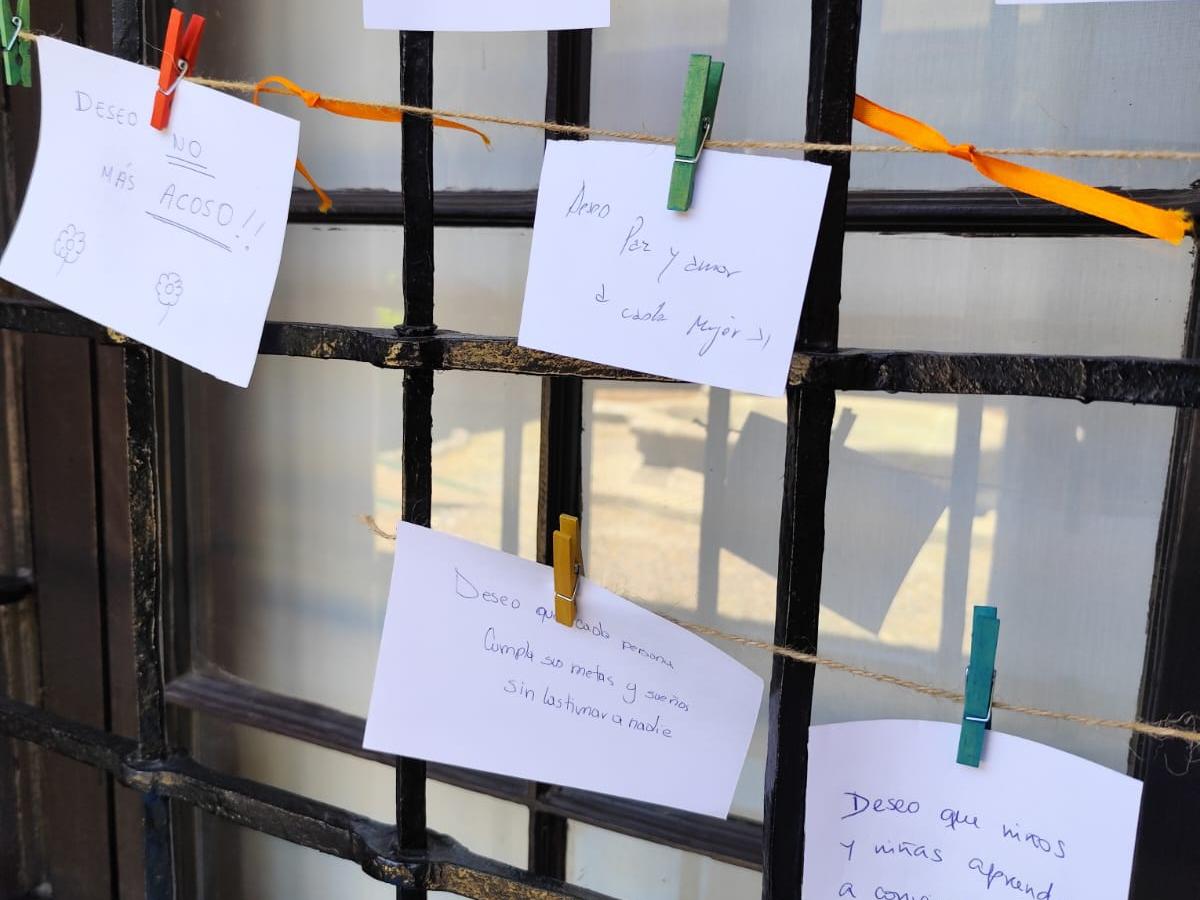 DESEO
NO
MÁS ACOSO!!
Deseo
Paz y amor
a
cada Mujer
Deseo que cada persona
Cumpla sus metas y sueños
sin lastimar a nadie
Deseo que niños
y niñas aprend
a